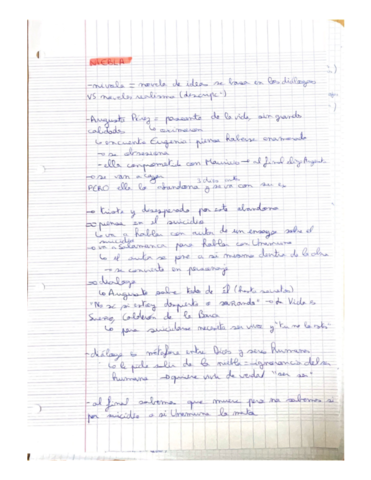 NIEBLA
-nivola = novela de ideas se basa en los diálogos
VS novelas realismo (descrip°)
-Augusto Pérez = paseante de la vida, sin grandes
calidades
↳ encuentra Eugenia: piensa haberse enamorado
→ se obsesiona
- ella comprometida con Mauricio → al final elige Augusto
→ se van a casar
PERO ella lo abandona y se va con su ex
→ triste y desesperado por este abandono
piensa en el suicidio
↳ va a hablar con autor de un ensayo sobre el
suicidio
va a Salamanca para hablar con Unamuno
↳ el autor se pone a sí mismo dentro de la obra
→ se convierte en personaje
diálogo
↳ Augusto sabe todo de él
"No sé si estoy despierto o soñando" → La Vida es
Sueño, Calderón de la Barca
↳ para suicidarse necesita ser vivo y "tú no lo estás"
-diálogo = metáfora entre Dios y seres humanos
↳ le pide salir de la niebla = ignorancia del ser
humano → quiere vivir de verdad "ser yo"
-al final sabemos que muere pero no sabemos si
por suicidio o si Unamuno lo mata